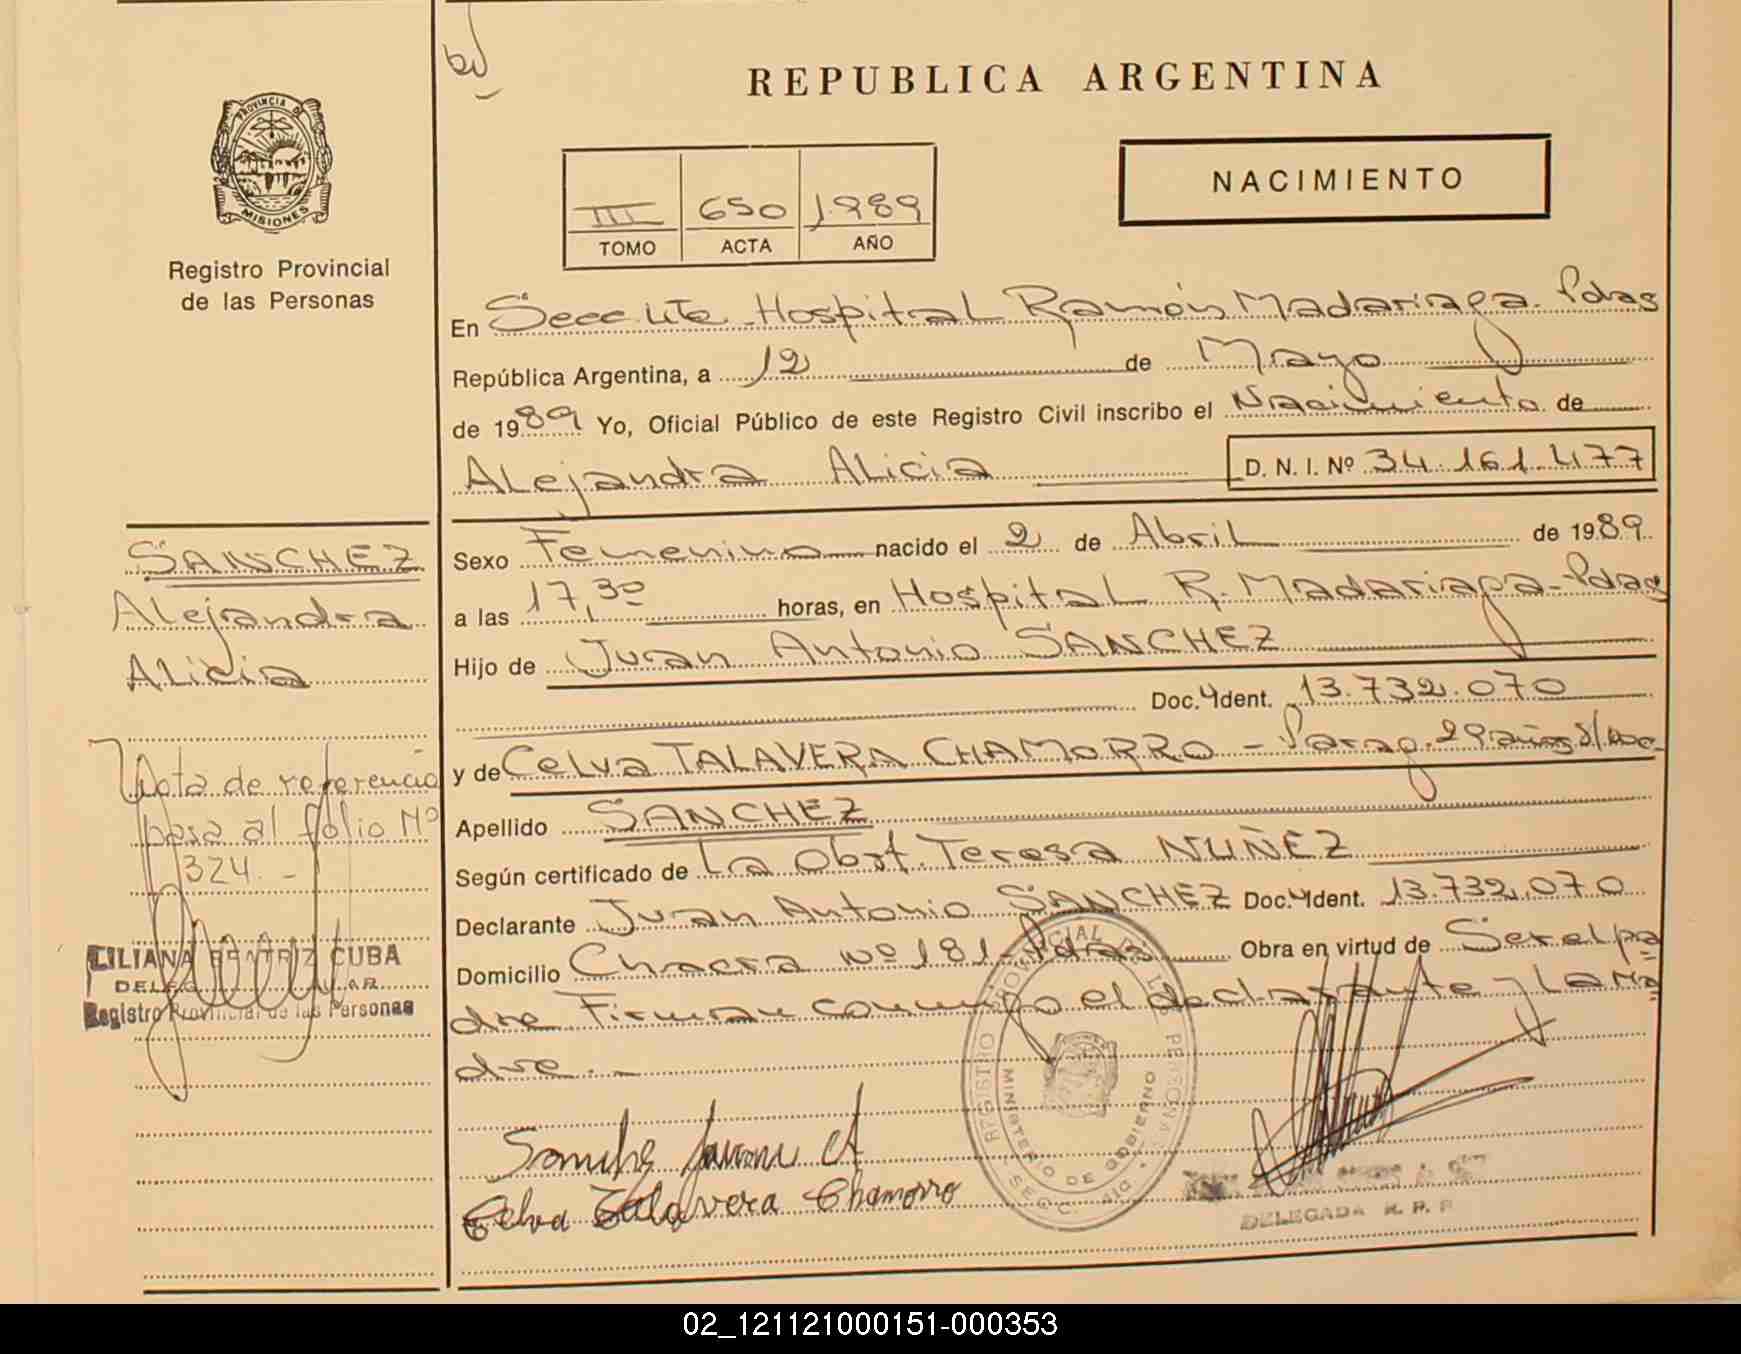 REPUBLICA ARGENTINA
PROVINCIA DE
MISIONES
Registro Provincial
de las Personas
III 650 1989
TOMO ACTA AÑO
NACIMIENTO
En Secc Hospital Ramón Madariaga Pdas
República Argentina, a 12 de Mayo
de 1989 Yo, Oficial Público de este Registro Civil inscribo el Nacimiento de
Alejandra Alicia D. N. I. Nº 34.161.477
Sexo Femenino nacido el 2 de Abril de 1989
a las 17,30 horas, en Hospital R. Madariaga-Pdas
Hijo de Juan Antonio SANCHEZ
Doc. Ident. 13.732.070
y de Celva TALAVERA CHAMORRO - Parag. 29 años s/doc-
Apellido SANCHEZ
Según certificado de La Obst. Teresa NUÑEZ
Declarante Juan Antonio SANCHEZ Doc. Ident. 13.732.070
Domicilio Chacra nº 181-Pdas Obra en virtud de Ser el pa
dre Firman conmigo el declarante y la Ma
dre.-
Sanche Juan A
Celva Talavera Chamorro
REGISTRO PROVINCIAL DE LAS PERSONAS
MINISTERIO DE GOBIERNO
DELEGADA R. P. P
SANCHEZ
Alejandra
Alicia
Nota de referencia
pasa al folio Nº
324.-
LILIANA BEATRIZ CUBA
Registro Provincial de las Personas
02_121121000151-000353